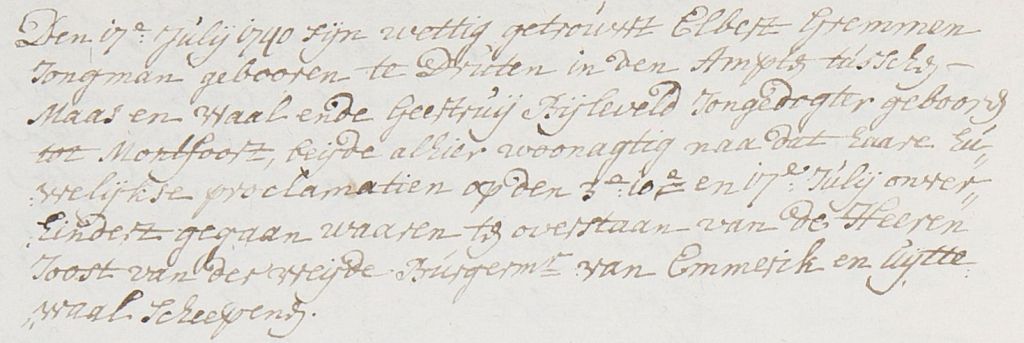 Den 17e. Julij 1740 sijn wettig getrouwt Elbert Gremmen
Jongman gebooren te Druten in den Ampte tussche –
Maas en Waal ende Geertruij Bijleveld Jongedogter geboore
tot Montfoort, beijde alhier woonagtig naa dat haare hu„
„welijkse proclamatien op den 3e. 10e en 17e. Julij onver„
hindert gegaan waaren te overstaan van de Heeren
Joost van der Weijde Burgermr van Emmerik en Uijtte
„waal Scheepene.